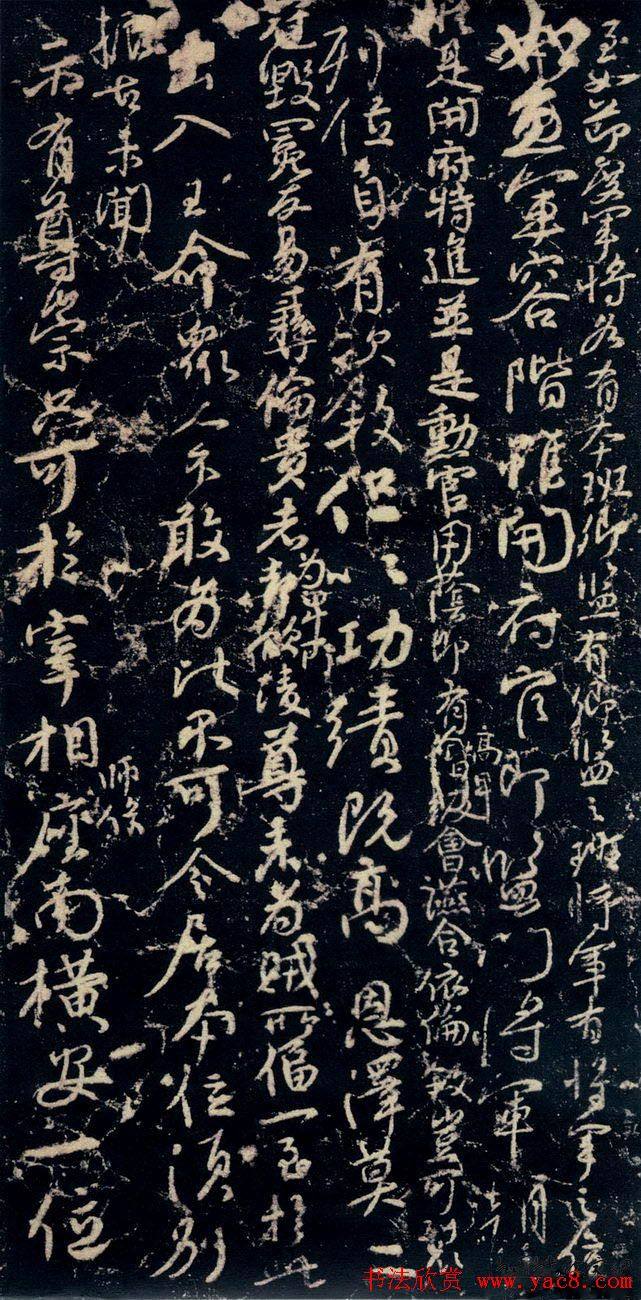 至如節度軍將各有本班卿監有卿監之班將軍有將軍之位
如魚軍容階雖開府官即監門將軍朝
縱是開府特進並是勳官用蔭即有高卑會讌合依倫敘豈可裂
列位自有次敘但以功績既高恩澤莫二
冠毀冕反易彝倫貴者為卑所凌尊者為賊所逼一至於此
出入王命眾人不敢為比不可令居本位須別
振古未聞
示有尊崇只可於宰相師保座南橫安一位
书法欣赏 www.yac8.com